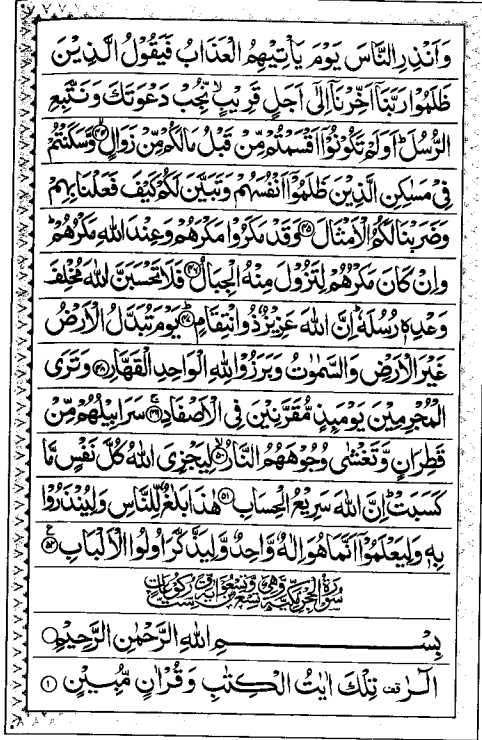 وَاَنْذِرِ النَّاسَ يَوْمَ يَاْتِيْهِمُ الْعَذَابُ فَيَقُوْلُ الَّذِيْنَ
ظَلَمُوْا رَبَّنَاۤ اَخِّرْنَاۤ اِلٰۤى اَجَلٍ قَرِيْبٍ ۙ نُّجِبْ دَعْوَتَكَ وَنَتَّبِعِ
الرُّسُلَ ؕ اَوَلَمْ تَكُوْنُوْۤا اَقْسَمْتُمْ مِّنْ قَبْلُ مَا لَكُمْ مِّنْ زَوَالٍ ۙ‏﴿۴۴﴾ وَّسَكَنْتُمْ
فِىْ مَسٰكِنِ الَّذِيْنَ ظَلَمُوْۤا اَنْفُسَهُمْ وَتَبَيَّنَ لَكُمْ كَيْفَ فَعَلْنَا بِهِمْ
وَضَرَبْنَا لَكُمُ الْاَمْثَالَ ﴿۴۵﴾ وَقَدْ مَكَرُوْا مَكْرَهُمْ وَعِنْدَ اللّٰهِ مَكْرُهُمْ ؕ
وَاِنْ كَانَ مَكْرُهُمْ لِتَزُوْلَ مِنْهُ الْجِبَالُ ﴿۴۶﴾ فَلَا تَحْسَبَنَّ اللّٰهَ مُخْلِفَ
وَعْدِهٖ رُسُلَهٗ ؕ اِنَّ اللّٰهَ عَزِيْزٌ ذُوْ انْتِقَامٍ ؕ﴿۴۷﴾ يَوْمَ تُبَدَّلُ الْاَرْضُ
غَيْرَ الْاَرْضِ وَالسَّمٰوٰتُ وَبَرَزُوْا لِلّٰهِ الْوَاحِدِ الْقَهَّارِ ﴿۴۸﴾ وَتَرَى
الْمُجْرِمِيْنَ يَوْمَٮِٕذٍ مُّقَرَّنِيْنَ فِى الْاَصْفَادِ ۚ﴿۴۹﴾ سَرَابِيْلُهُمْ مِّنْ
قَطِرَانٍ وَّتَغْشٰى وُجُوْهَهُمُ النَّارُ ۙ﴿۵۰﴾ لِيَجْزِىَ اللّٰهُ كُلَّ نَفْسٍ مَّا
كَسَبَتْ ؕ اِنَّ اللّٰهَ سَرِيْعُ الْحِسَابِ ﴿۵۱﴾ هٰذَا بَلٰغٌ لِّلنَّاسِ وَلِيُنْذَرُوْا
بِهٖ وَلِيَعْلَمُوْۤا اَنَّمَا هُوَ اِلٰهٌ وَّاحِدٌ وَّلِيَذَّكَّرَ اُولُوا الْاَلْبَابِ ﴿۵۲﴾ ع
سورة الحجر مكية وهى تسع وتسعون اية وست ركوعات
بِسْمِ اللّٰهِ الرَّحْمٰنِ الرَّحِيْمِ
الٓرٰ قف تِلْكَ اٰيٰتُ الْكِتٰبِ وَقُرْاٰنٍ مُّبِيْنٍ ﴿۱﴾